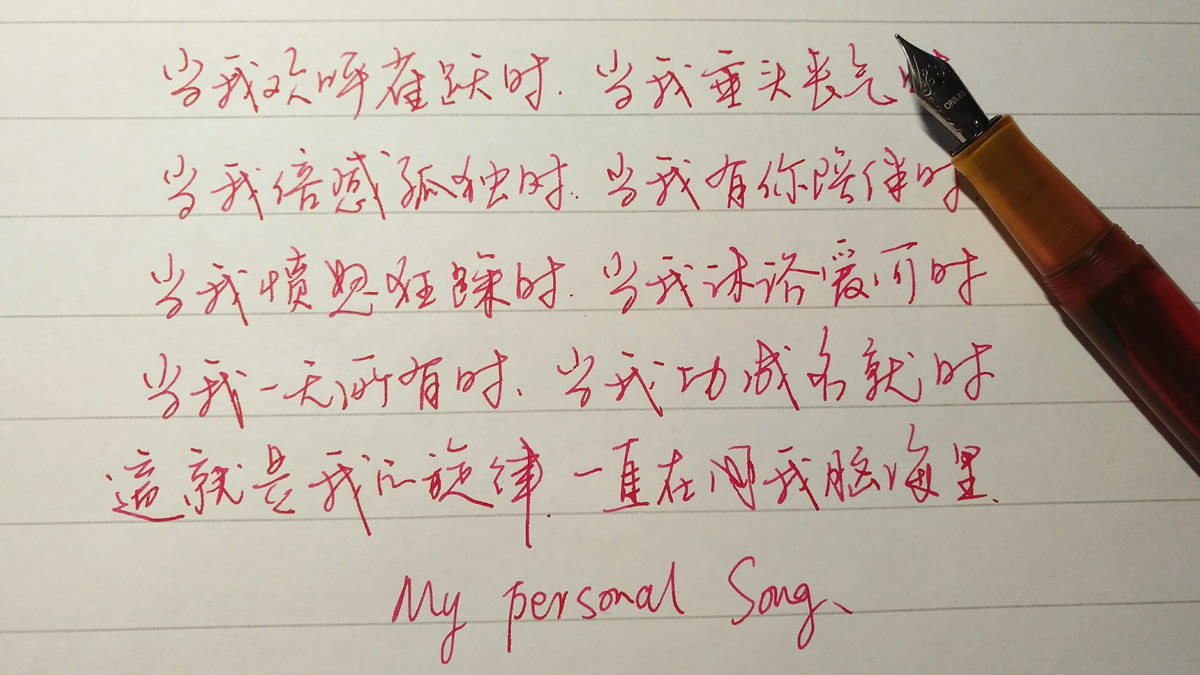 当我欢呼雀跃时.当我垂头丧气时
当我倍感孤独时.当我有你陪伴时
当我愤怒狂躁时.当我沐浴爱河时
当我一无所有时、当我功成名就时
這就是我的旋律.一直在我脑海里.
My personal Song、